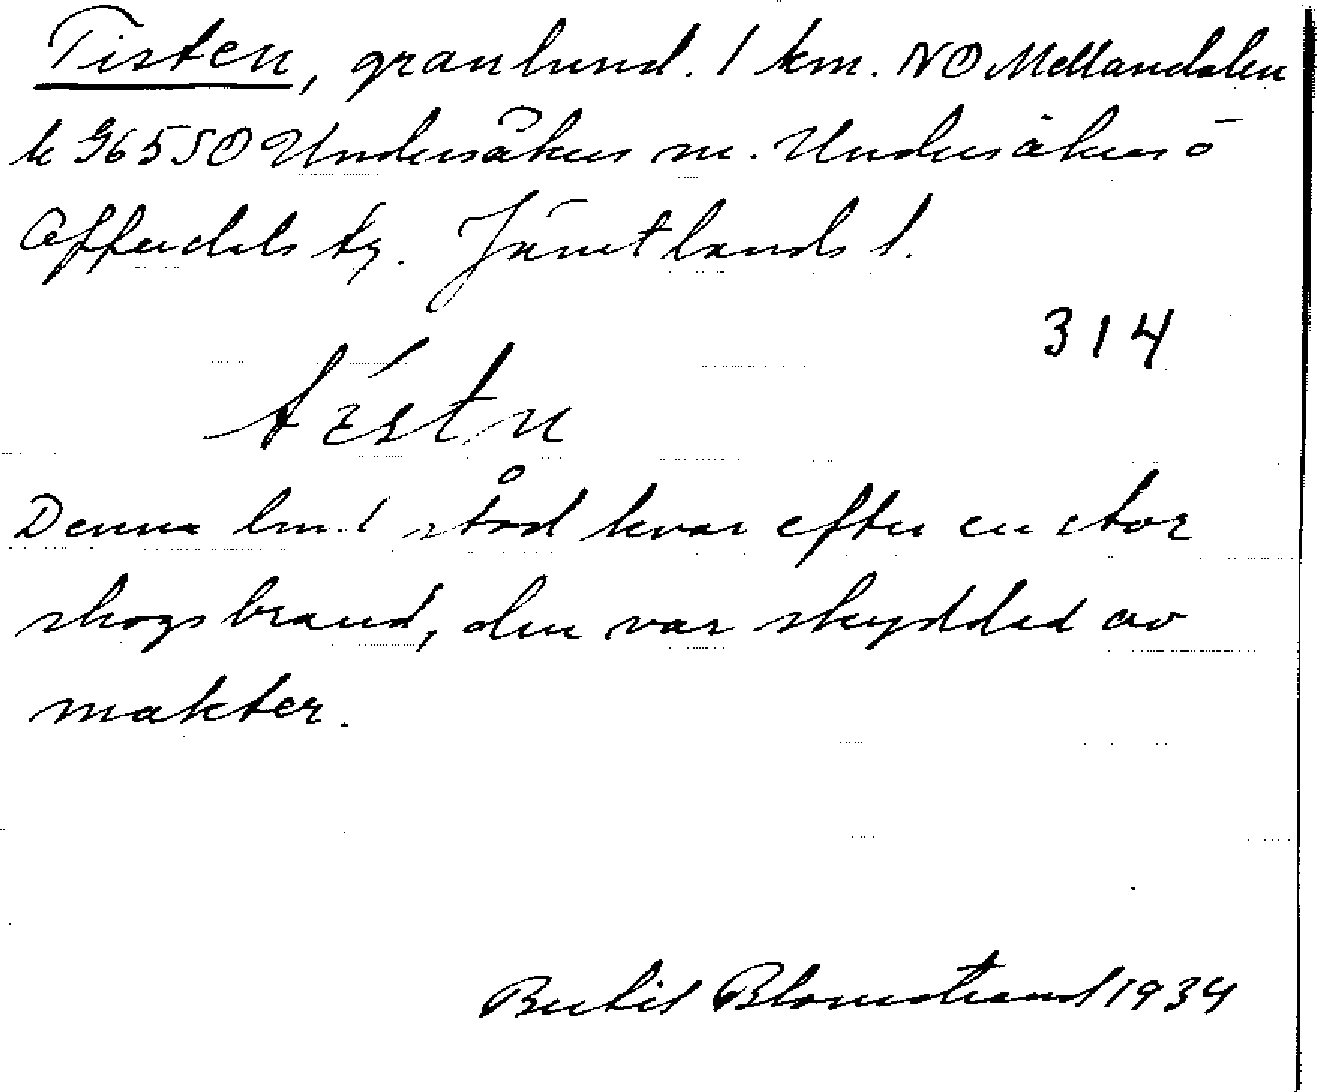 Tisten, granlund. 1 km. NO Mellandalen
k G6550 Undersåkers sn. Undersåkers o
Offerdals tg. Jämtlands l.
314
tı́stn
Denna lund stod kvar efter en stor
skogsbrand, den var skyddad av
makter.
Bertil Blomstrand 1934